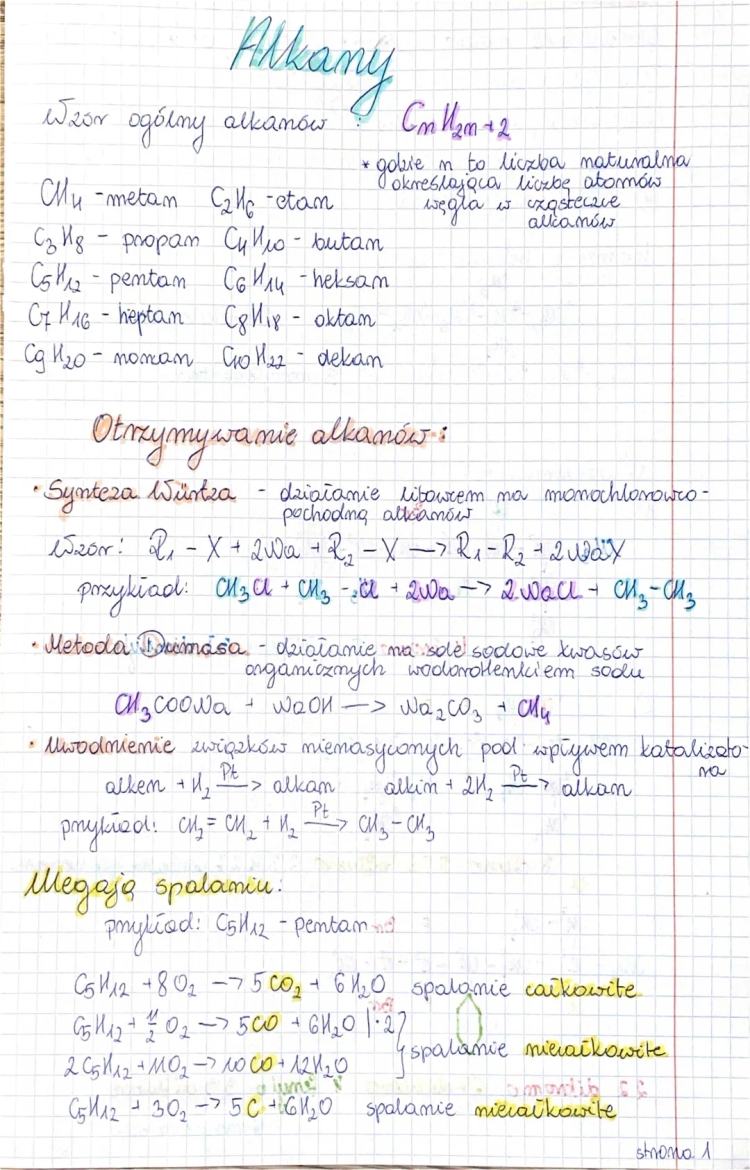 Alkany
Wzór ogólny alkanów : CnH2n+2
* gdzie n to liczba naturalna
określająca liczbę atomów
węgla w cząsteczce
alkanów
CH4 - metan C2H6 - etan
C3H8 - propan C4H10 - butan
C5H12 - pentan C6H14 - heksan
C7H16 - heptan C8H18 - oktan
C9H20 - nonan C10H22 - dekan
Otrzymywanie alkanów:
• Synteza Würtza - działanie litowcem na monochlorowco-
pochodną alkanów
Wzór: R1 - X + 2Na + R2 - X → R1 - R2 + 2NaX
przykład: CH3Cl + CH3 - Cl + 2Na → 2NaCl + CH3-CH3
• Metoda Dumasa - działanie na sole sodowe kwasów
organicznych wodorotlenkiem sodu
CH3COONa + NaOH → Na2CO3 + CH4
• Uwodnienie związków nienasyconych pod wpływem katalizato-
ra
alken + H2 Pt→ alkan alkin + 2H2 Pt→ alkan
przykład: CH2=CH2 + H2 Pt→ CH3-CH3
Ulegają spalaniu:
przykład: C5H12 - pentan
C5H12 + 8O2 → 5CO2 + 6H2O spalanie całkowite
C5H12 + 11/2 O2 → 5CO + 6H2O |·2
2C5H12 + 11O2 → 10CO + 12H2O } spalanie niecałkowite
C5H12 + 3O2 → 5C + 6H2O spalanie niecałkowite
strona 1